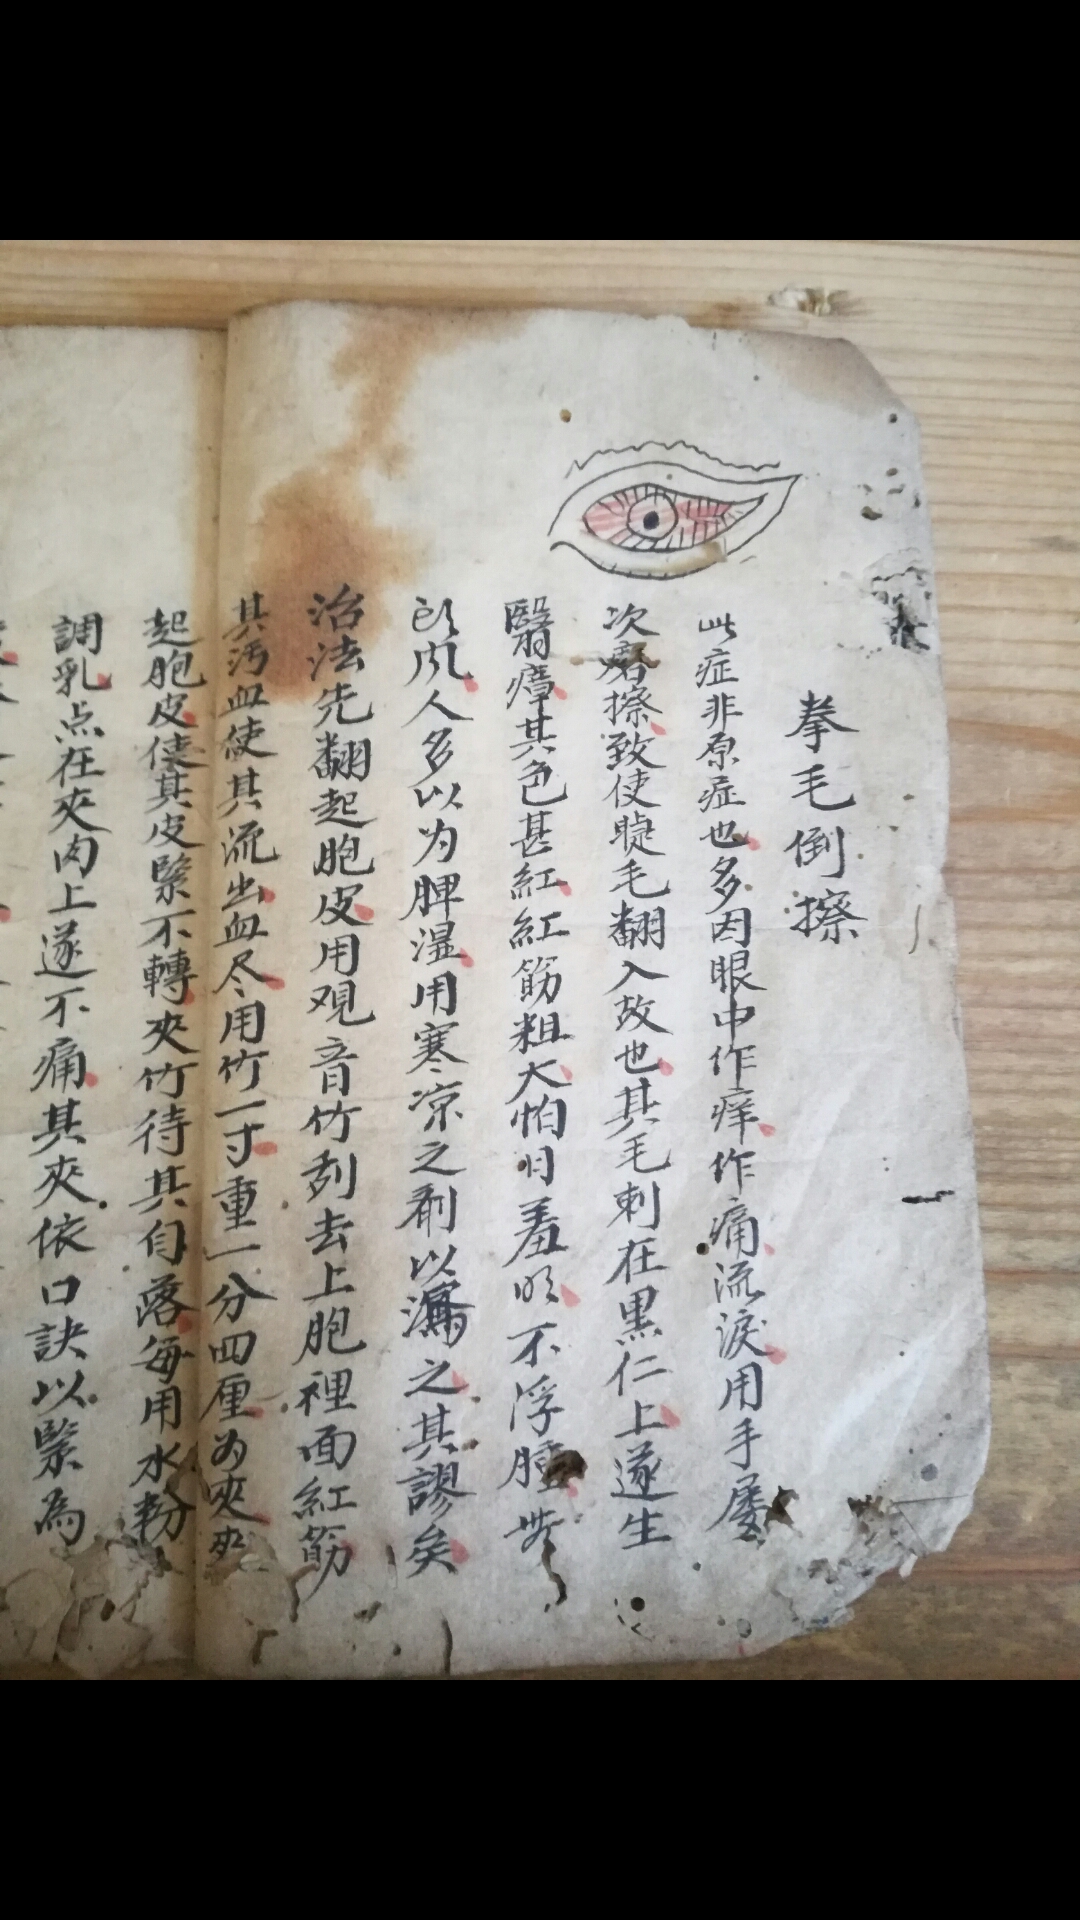 拳毛倒擦
此症非原症也多因眼中作痒作痛流淚用手屡
次磨擦致使睫毛翻入故也其毛刺在黒仁上遂生
翳瘴其色甚紅紅筋粗大怕日羞明不浮腫
人多以为脾湿用寒凉之剤以瀉之其謬矣
治法先翻起胞皮用观音竹刮去上胞裡面紅筋
其污血使其流出血尽用竹一寸重一分四厘为夾夾
起胞皮使其皮緊不轉夾竹待其自落每用水粉
調乳点在夾肉上遂不痛其夾依口訣以緊為